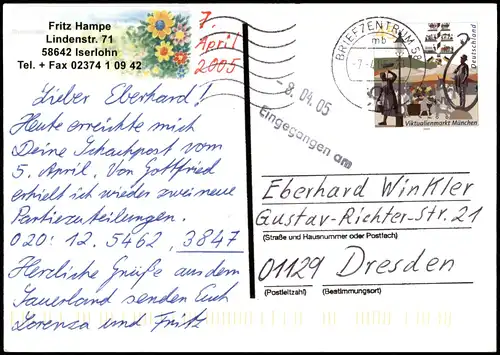 Fritz Hampe
Lindenstr. 71
58642 Iserlohn
Tel. + Fax 02374 1 09 42
7.
April
2005
Lieber Eberhard!
Heute erreichte mich
Deine Schachpost vom
5. April. Von Gottfried
erhielt ich wieder zwei neue
Partiezuteilungen.
020: 12. 5462, 3847
Herzliche Grüße aus dem
Sauerland senden Euch
Lorenza und Fritz
BRIEFZENTRUM 58
mb
-8. 04. 05
Eingegangen am
Deutschland
Viktualienmarkt München
Eberhard Winkler
Gustav-Richter-Str. 21
(Straße und Hausnummer oder Postfach)
01129 Dresden
(Postleitzahl) (Bestimmungsort)